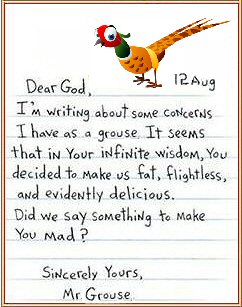 12 Aug
Dear God,
I'm writing about some concerns
I have as a grouse. It seems
that in Your infinite wisdom, You
decided to make us fat, flightless,
and evidently delicious.
Did we say something to make
You mad?
Sincerely Yours,
Mr. Grouse